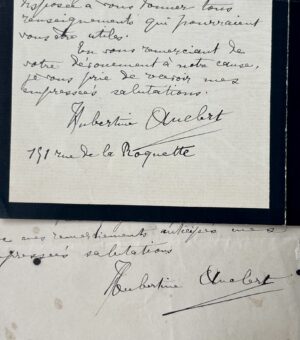 disposée à vous donner tous
renseignements qui pourraient
vous être utiles.
En vous remerciant de
votre dévouement à notre cause,
je vous prie de recevoir mes
empressées salutations.
Hubertine Auclert
151 rue de la Roquette
mes remerciements anticipés mes
empressées salutations
Hubertine Auclert